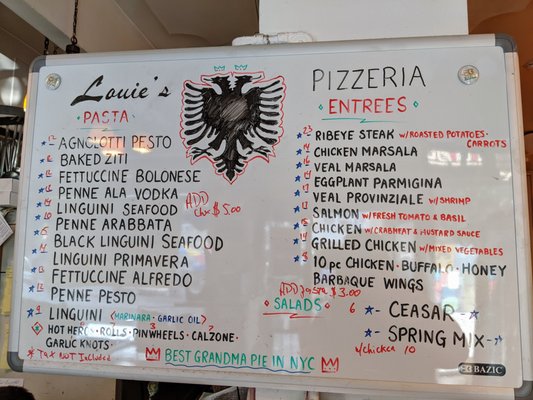 Louie's
PIZZERIA
PASTA
AGNOLOTTI PESTO
BAKED ZITI
FETTUCINE BOLONESE
PENNE ALA VODKA
LINGUINI SEAFOOD
ADD
$5.00
PENNE ARABBATA
BLACK LINGUINI SEAFOOD
LINGUINI PRIMAVERA
FETTUCINE ALFREDO
PENNE PESTO
9 LINGUINI (MARINARA · GARLIC OIL)
HOT HEROS · ROLLS · PINWHEELS · CALZONE ·
GARLIC KNOTS ·
* TAX NOT Included
ENTREES
23 RIBEYE STEAK W/ROASTED POTATOES · CARROTS
14 CHICKEN MARSALA
VEAL MARSALA
EGGPLANT PARMIGINA
VEAL PROVINZIALE W/SHRIMP
SALMON W/FRESH TOMATO & BASIL
CHICKEN W/CRABMEAT & MUSTARD SAUCE
14 GRILLED CHICKEN W/MIXED VEGETABLES
8 10 pc CHICKEN · BUFFALO · HONEY
BARBAQUE WINGS
ADD PASTA $3.00
SALADS
6
CEASAR
SPRING MIX
w/chicken 10
BEST GRANDMA PIE IN NYC
BAZIC